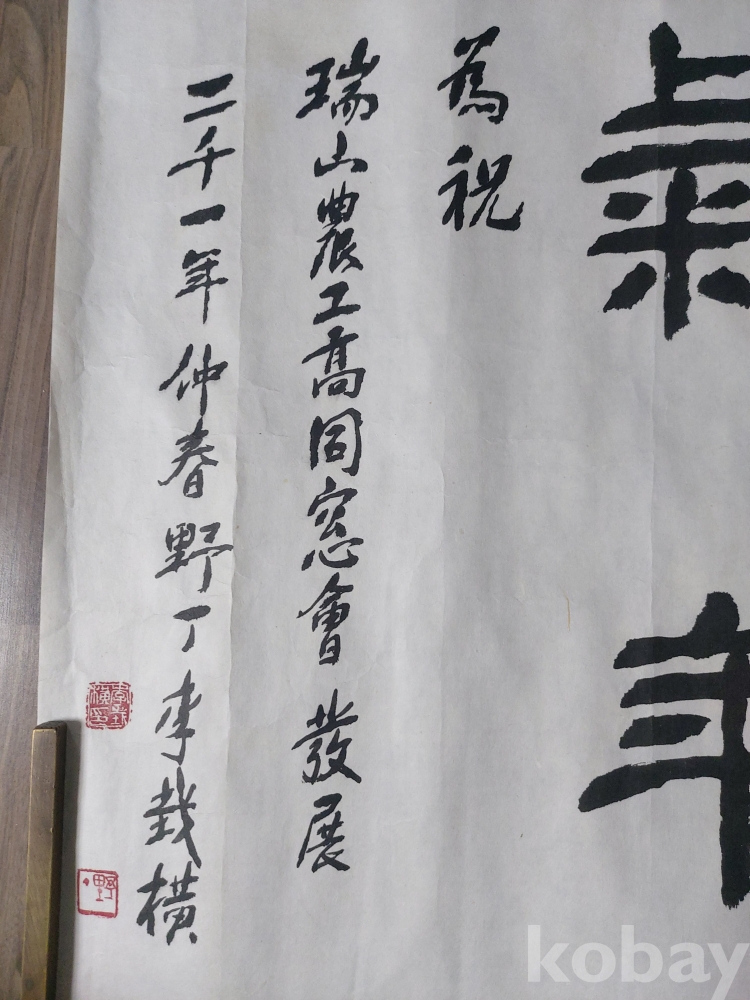 為祝
瑞山農工高同窓會 發展
二千一年 仲春 野丁 李 橫
kobay